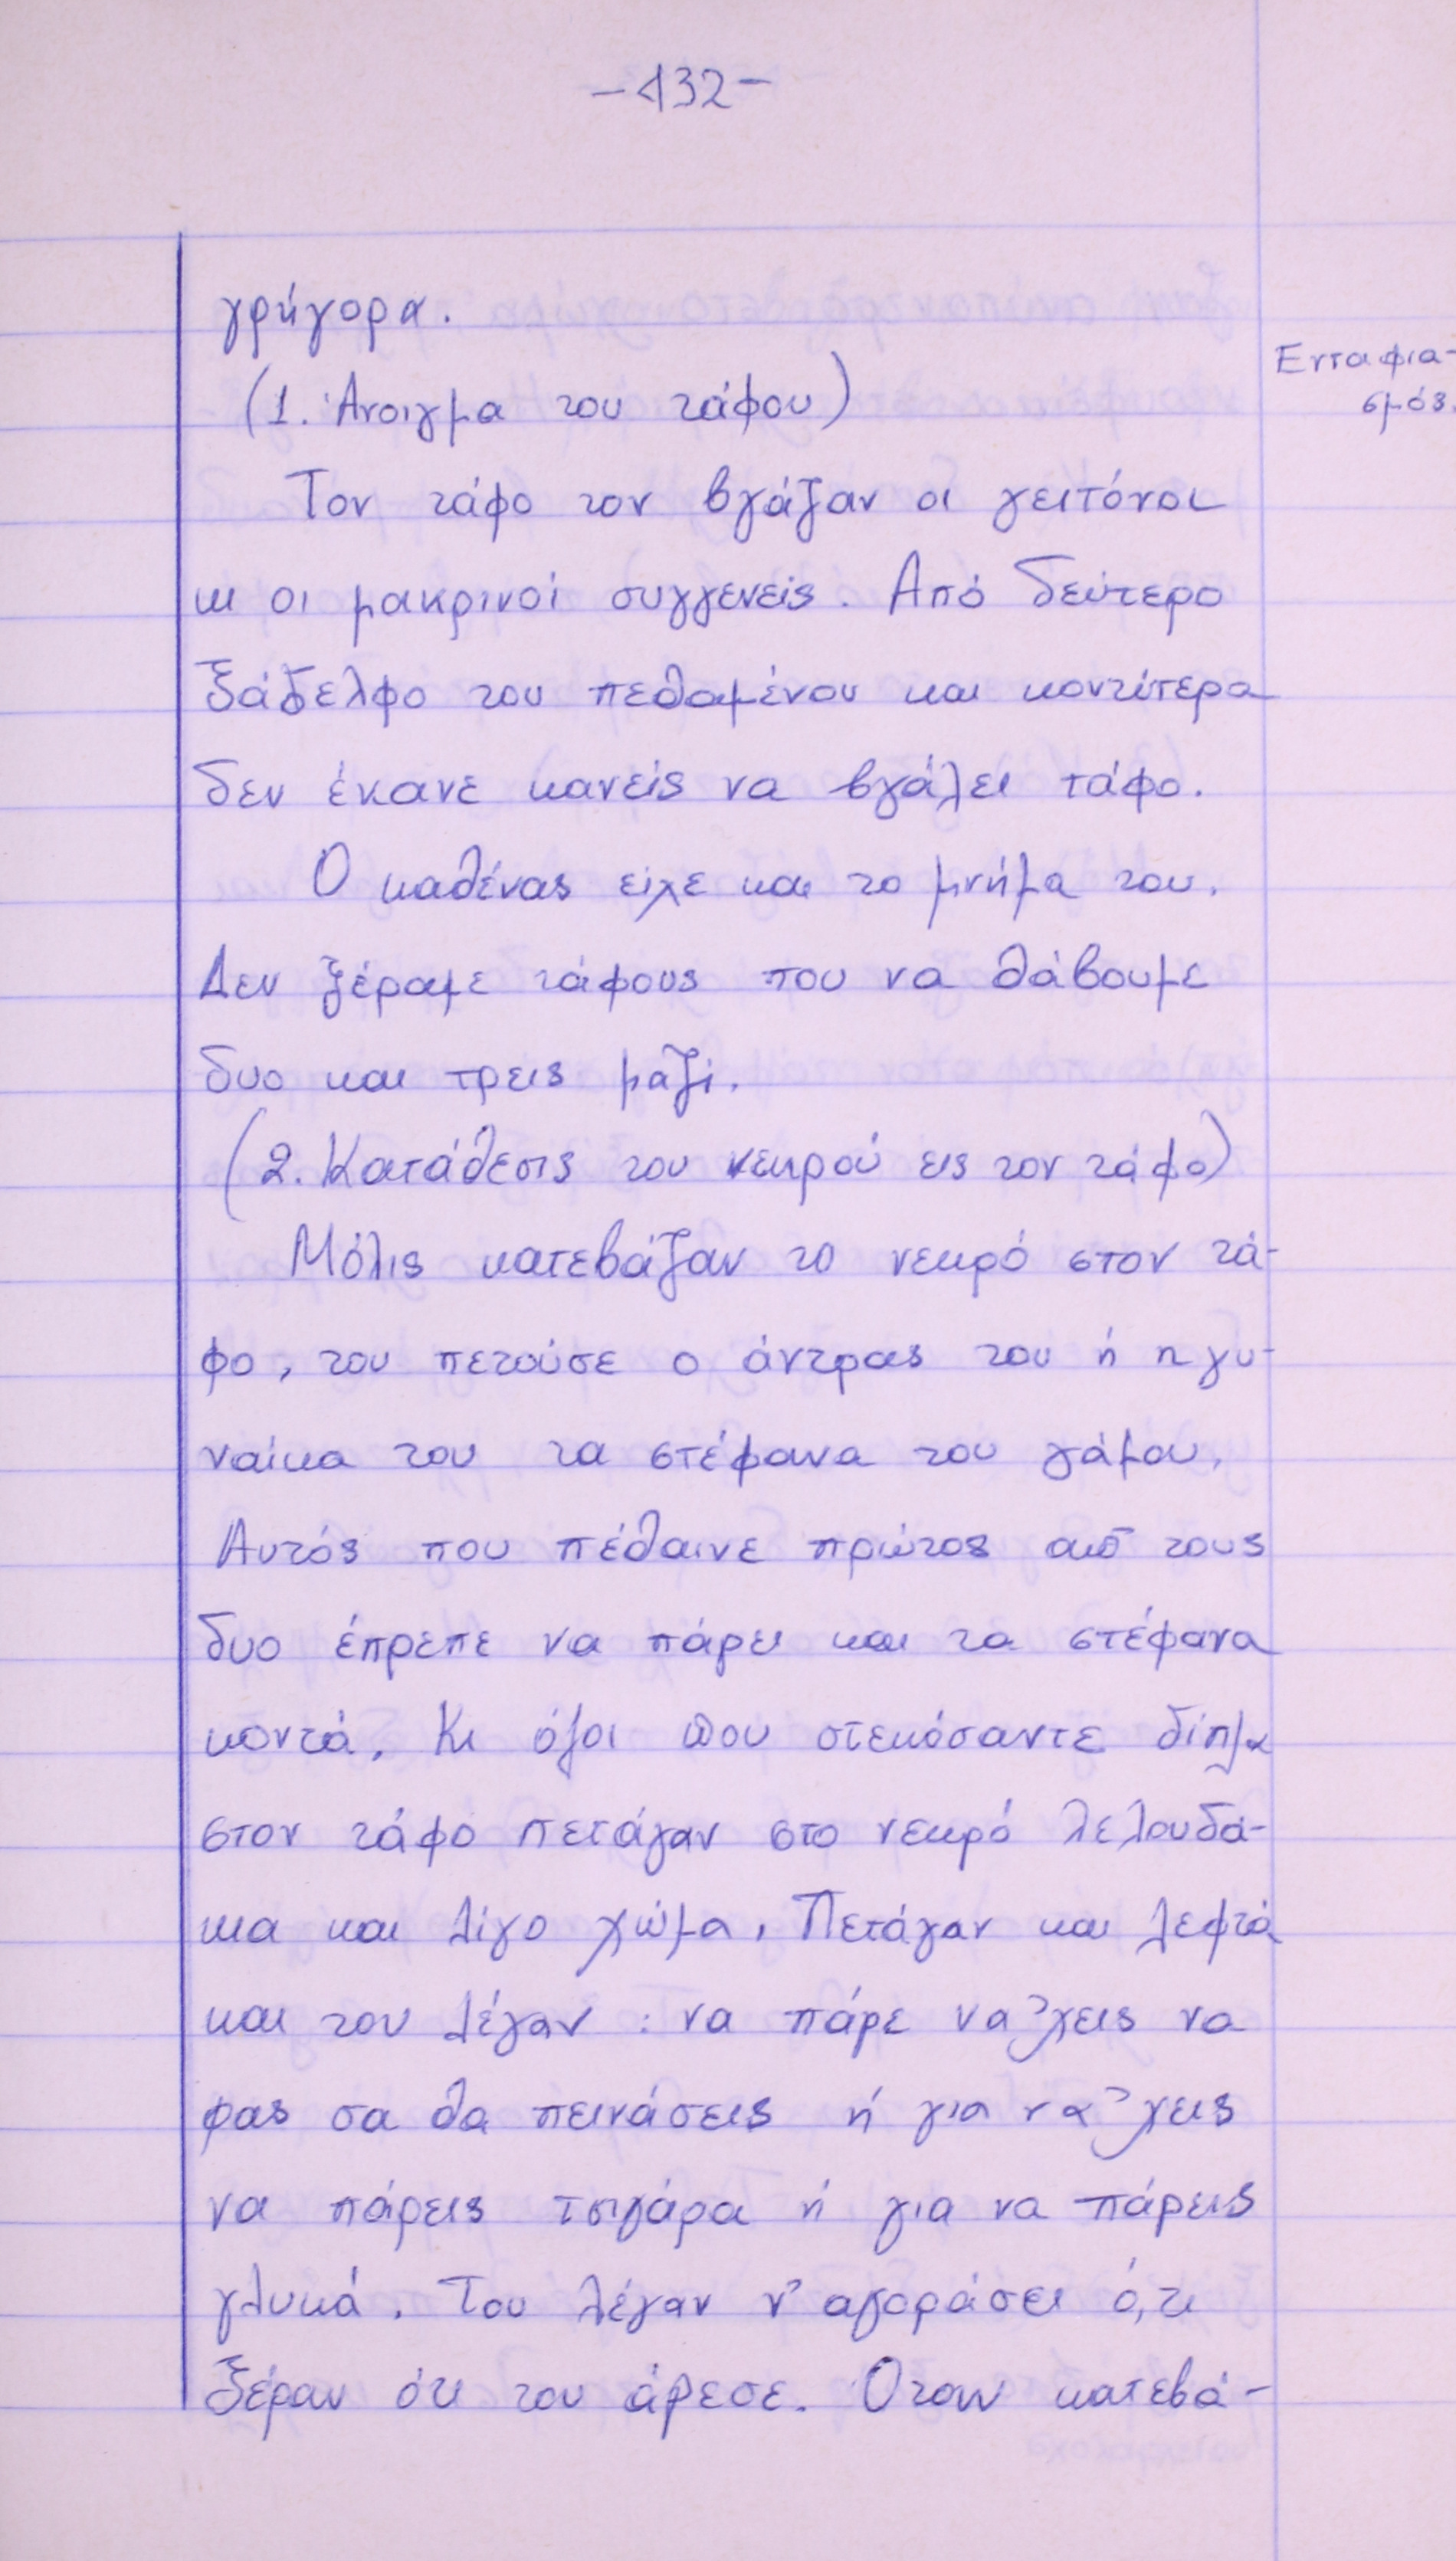 -132-
γρήγορα.
Ενταφια-
σμός.
(1. Άνοιγμα του τάφου)
Τον τάφο τον βγάζαν οι γειτόνοι
κι οι μακρινοί συγγενείς. Από δεύτερο
ξάδελφο του πεθαμένου και κοντύτερα
δεν έκανε κανείς να βγάλει τάφο.
Ο καθένας είχε και το μνήμα του.
Δεν ξέραμε τάφους που να θάβουμε
δυο και τρεις μαζί.
(2. Κατάθεσις του νεκρού εις τον τάφο)
Μόλις κατεβάζαν το νεκρό στον τά-
φο, του πετούσε ο άντρας του ή η γυ-
ναίκα του τα στέφανα του γάμου.
Αυτός που πέθαινε πρώτος από τους
δυο έπρεπε να πάρει και τα στέφανα
κοντά. Κι όλοι που στεκόσαντε δίπλα
στον τάφο πετάγαν στο νεκρό λελουδά-
κια και λίγο χώμα. Πετάγαν και λεφτά
και του λέγαν : να πάρε να 'χεις να
φας σα θα πεινάσεις ή για να 'χεις
να πάρεις τσιγάρα ή για να πάρεις
γλυκά. Του λέγαν ν' αγοράσει ό,τι
ξέραν ότι του άρεσε. Όταν κατεβά-